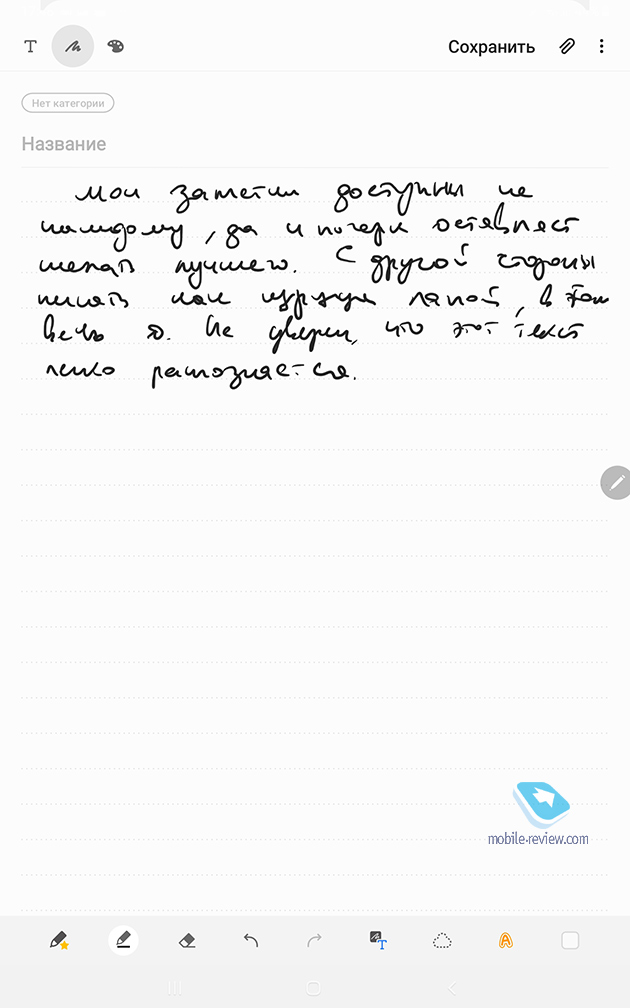 Сохранить
Нет категории
Название
Мои заметки доступны не
каждому, да и почерк оставляет
желать лучшего. С другой стороны
писать как курица лапой, в этом
весь я. Не уверен, что этот текст
легко распознается.
mobile-review.com